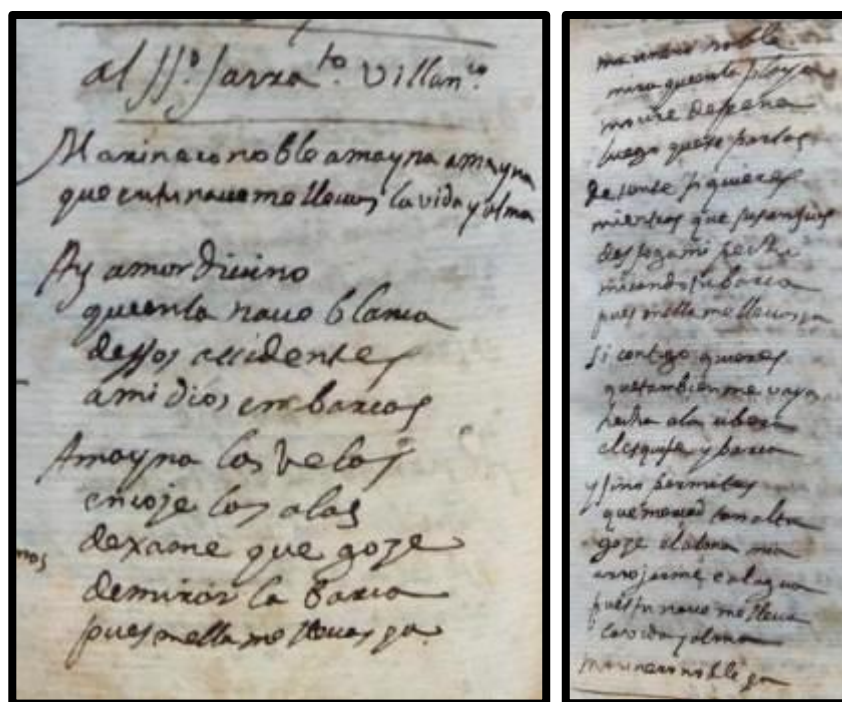 al SS.º Sarra.to Villan.co
Marinero noble amayna amayna
que en tu naue me lleuas la vida y alma
Ay amor diuino
que en la naue blanca
dessos accidentes
a mi dios embarcas
Amayna las velas
encoje las alas
dexame que goze
de mirar la barca
pues en ella me lleuas ga
marinero noble
mira que en la playa
morire de pena
luego que te partas
detente si quieres
mientras que
desfoga mi pecho
mirando tu barca
pues en ella me lleuas ga
Si contigo quieres
que tambien me vaya
echa a la ribera
el esquife y barca
y sino permites
que merced tan alta
goze el alma mia
arrojarme e al agua
pues tu naue me lleua
la vida y alma
marinero noble ga